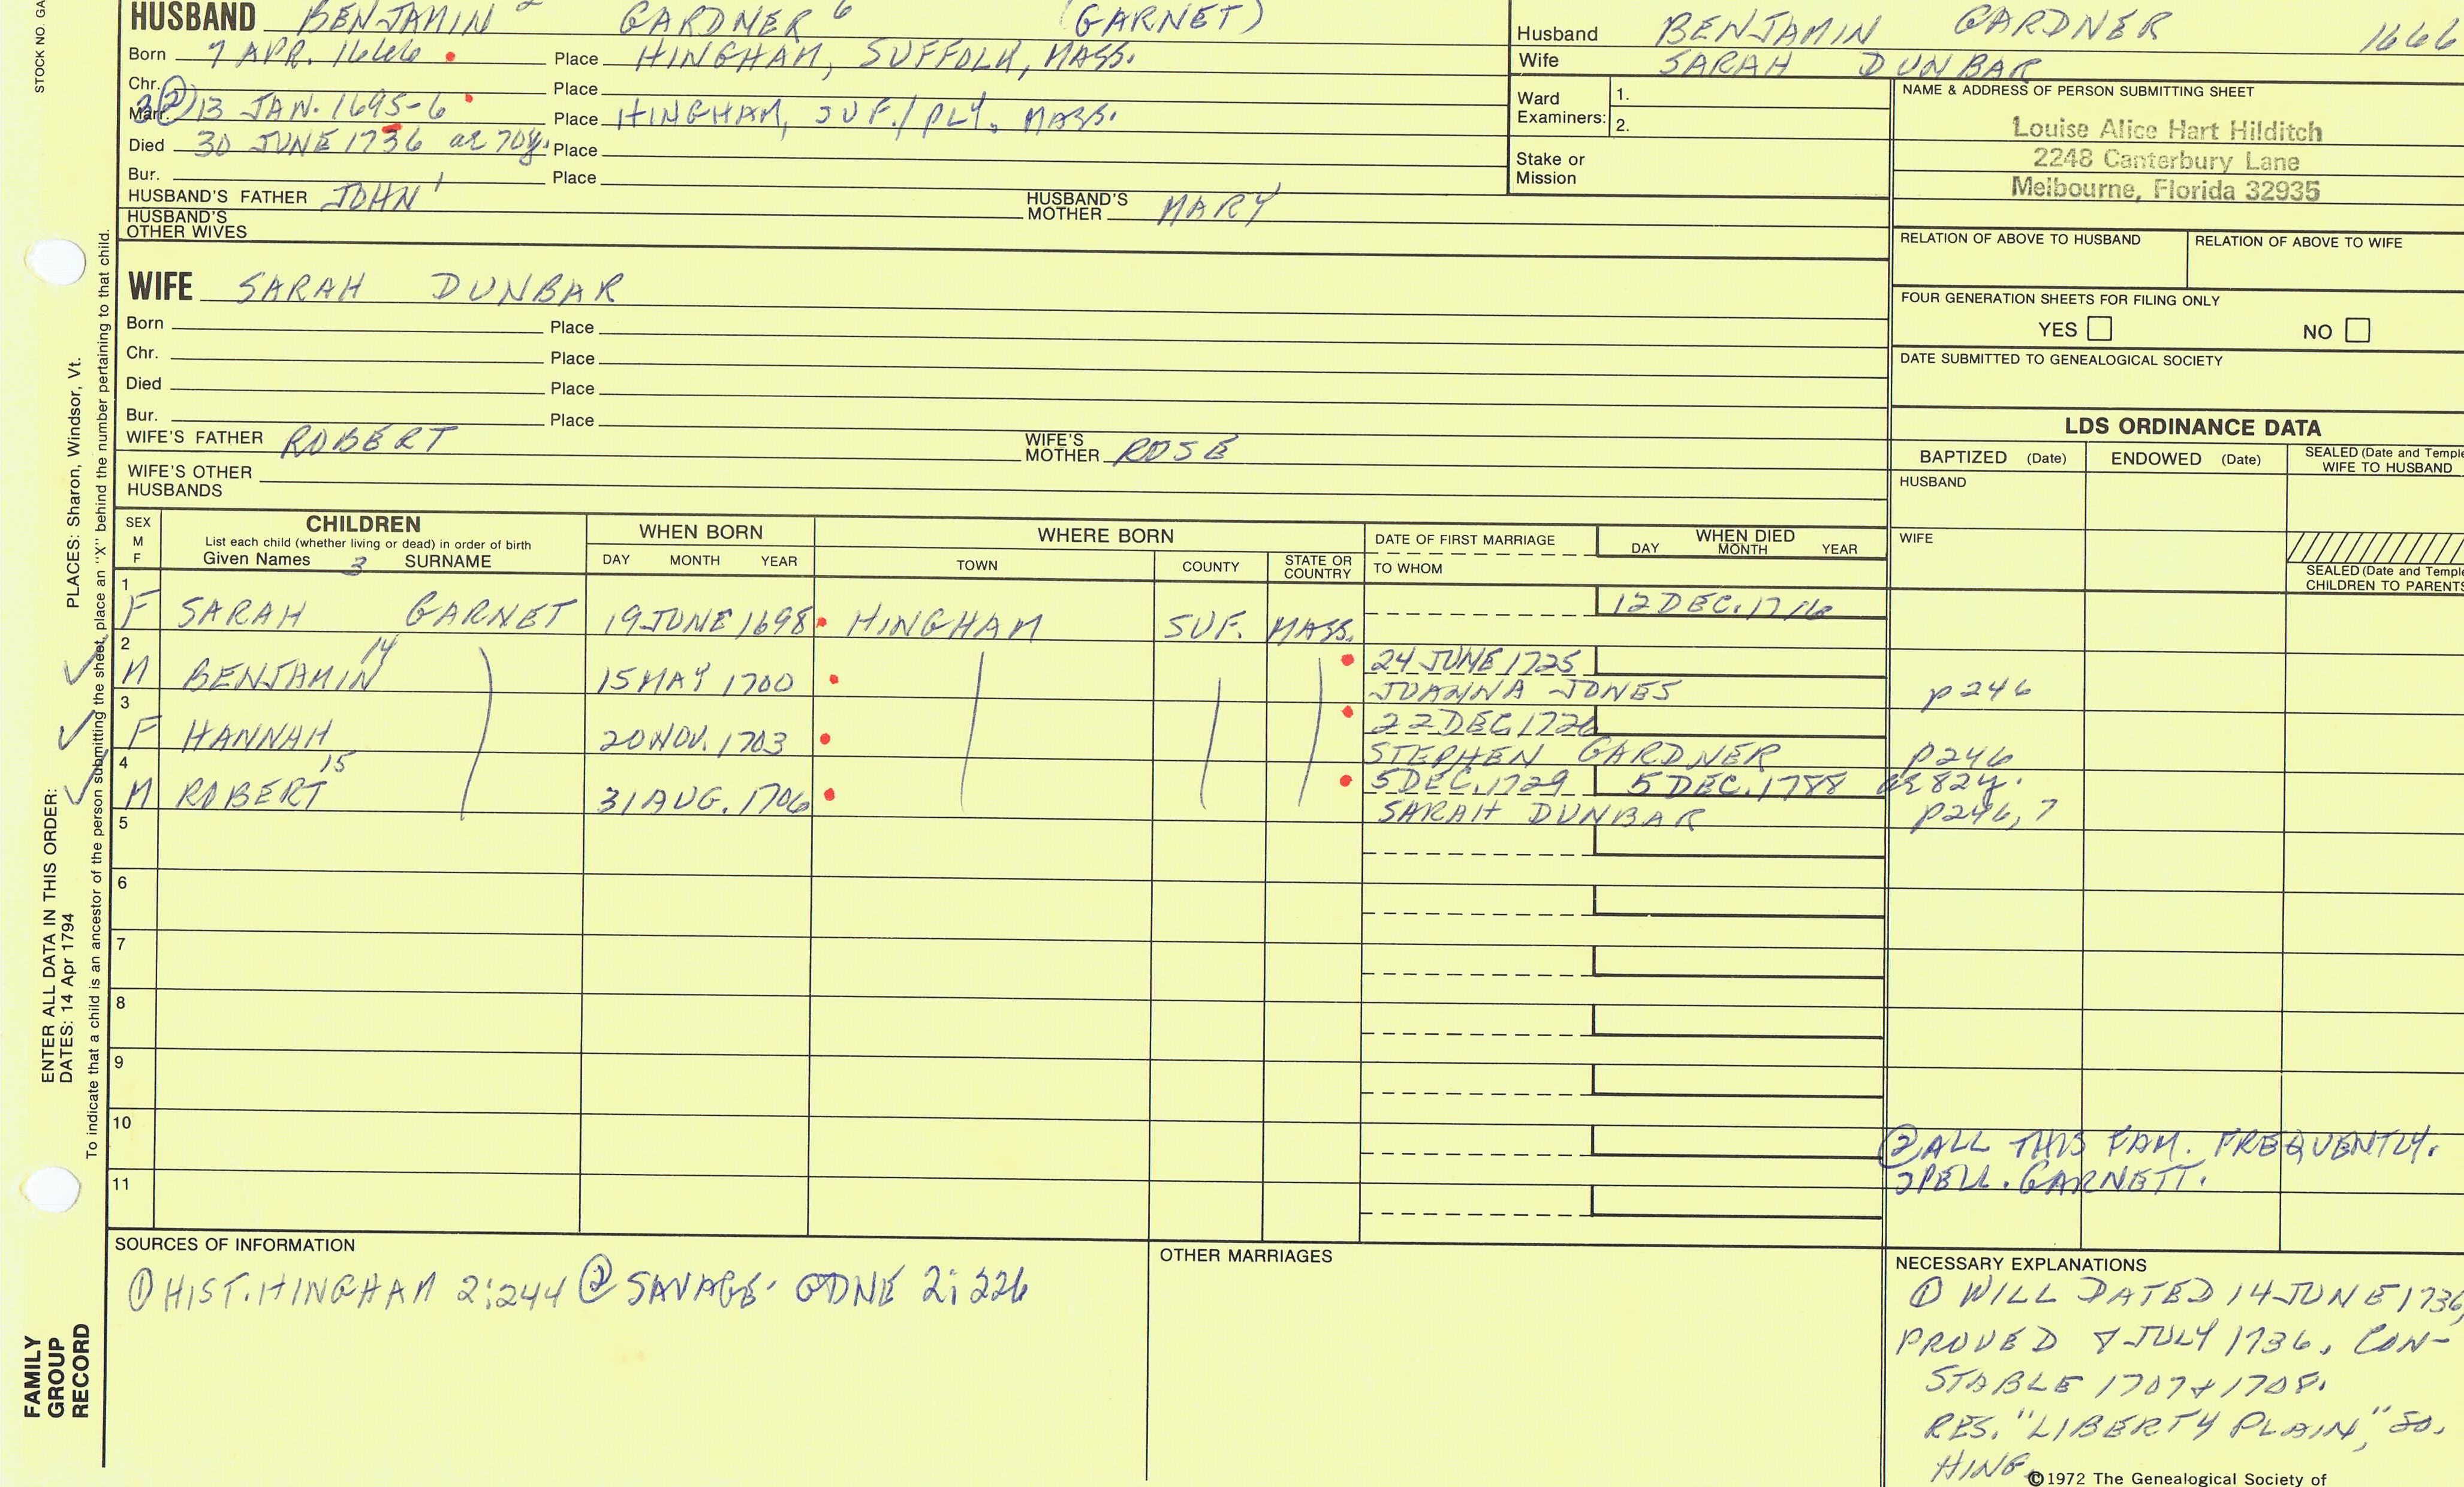 STOCK NO. GA
HUSBAND BENJAMIN 2 GARDNER 6 (GARNET)
Born 7 APR. 1666 Place HINGHAM, SUFFOLK, MASS.
Chr. Place
Marr. ② 13 JAN. 1695-6 Place HINGHAM, SUF./PLY. MASS.
Died 30 JUNE 1736 ae 70y. Place
Bur. Place
HUSBAND'S FATHER JOHN 1 HUSBAND'S MOTHER MARY
HUSBAND'S OTHER WIVES
Husband BENJAMIN GARDNER 1666
Wife SARAH DUNBAR
Ward Examiners: 1.
2.
Stake or Mission
NAME & ADDRESS OF PERSON SUBMITTING SHEET
Louise Alice Hart Hilditch
2248 Canterbury Lane
Melbourne, Florida 32935
RELATION OF ABOVE TO HUSBAND RELATION OF ABOVE TO WIFE
FOUR GENERATION SHEETS FOR FILING ONLY
YES NO
DATE SUBMITTED TO GENEALOGICAL SOCIETY
WIFE SARAH DUNBAR
Born Place
Chr. Place
Died Place
Bur. Place
WIFE'S FATHER ROBERT WIFE'S MOTHER ROSE
WIFE'S OTHER HUSBANDS
LDS ORDINANCE DATA
BAPTIZED (Date) ENDOWED (Date) SEALED (Date and Temple
WIFE TO HUSBAND
HUSBAND
WIFE
SEALED (Date and Temple
CHILDREN TO PARENTS
SEX M F CHILDREN WHEN BORN WHERE BORN DATE OF FIRST MARRIAGE WHEN DIED
List each child (whether living or dead) in order of birth
Given Names 3 SURNAME DAY MONTH YEAR TOWN COUNTY STATE OR COUNTRY TO WHOM DAY MONTH YEAR
1 F SARAH GARNET 19 JUNE 1698 HINGHAM SUF. MASS. 12 DEC. 1716
2 M BENJAMIN 14 15 MAY 1700 24 JUNE 1725
JOANNA JONES p246
3 F HANNAH 20 NOV. 1703 22 DEC. 1726
STEPHEN GARDNER p246
4 M ROBERT 15 31 AUG. 1706 5 DEC. 1729 5 DEC. 1788 ae 82y.
SARAH DUNBAR p246, 7
5
6
7
8
9
10
11
② ALL THIS FAM. FREQUENTLY.
SPELL. GARNETT.
SOURCES OF INFORMATION
① HIST. HINGHAM 2:244 ② SAVAGE. GDNE 2:226
OTHER MARRIAGES
NECESSARY EXPLANATIONS
① WILL DATED 14 JUNE 1736,
PROVED 8 JULY 1736. CON-
STABLE 1707 & 1708.
RES. "LIBERTY PLAIN," SO.
HING.
©1972 The Genealogical Society of
PLACES: Sharon, Windsor, Vt.
To indicate that a child is an ancestor of the person submitting the sheet, place an "X" behind the number pertaining to that child.
ENTER ALL DATA IN THIS ORDER:
DATES: 14 Apr 1794
FAMILY
GROUP
RECORD